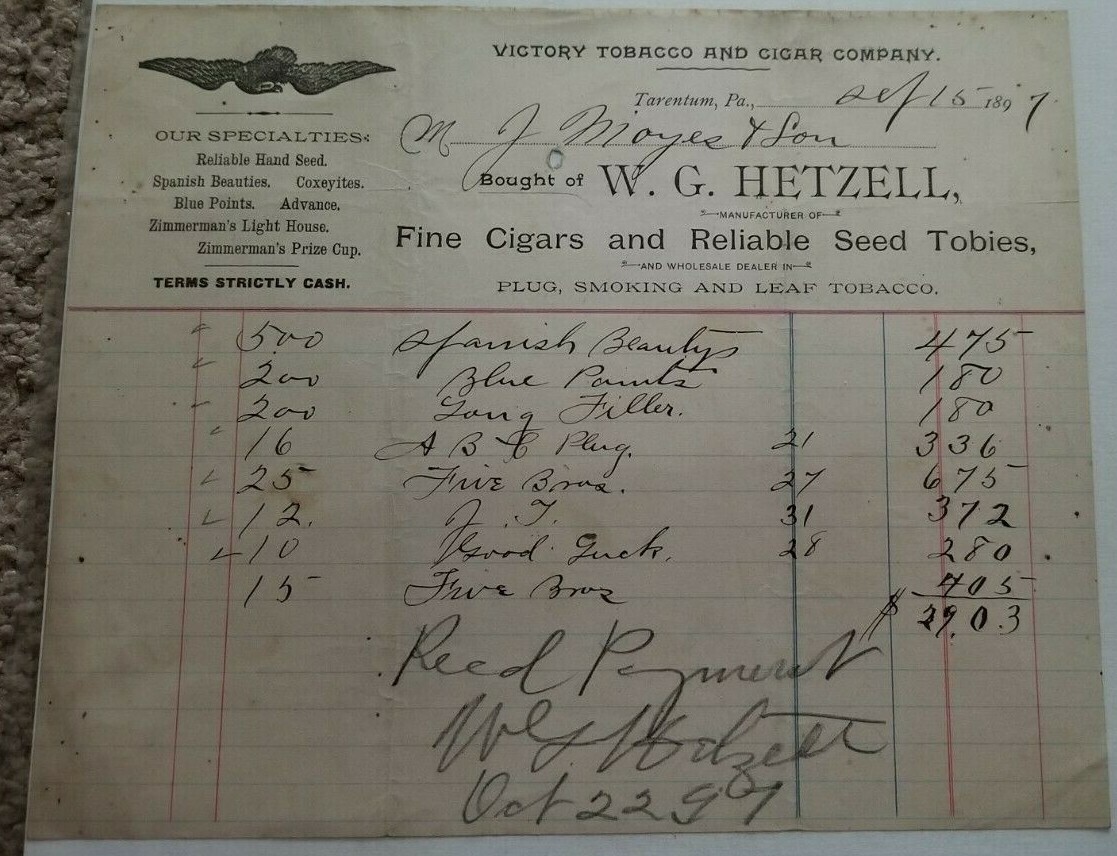 VICTORY TOBACCO AND CIGAR COMPANY.
Tarentum, Pa., Sep 15 1897
M J Moyes & Son
Bought of W. G. HETZELL,
MANUFACTURER OF
Fine Cigars and Reliable Seed Tobies,
AND WHOLESALE DEALER IN
PLUG, SMOKING AND LEAF TOBACCO.
OUR SPECIALTIES:
Reliable Hand Seed.
Spanish Beauties. Coxeyites.
Blue Points. Advance.
Zimmerman's Light House.
Zimmerman's Prize Cup.
TERMS STRICTLY CASH.
500 Spanish Beautys 475
200 Blue Points 180
200 Long Filler. 180
16 A B C Plug. 21 336
25 Five Bros. 27 675
12. J. T. 31 372
10 Good Luck. 28 280
15 Five Bros 405
$ 29.03
Recd Payment
W G Hetzell
Oct 22 97